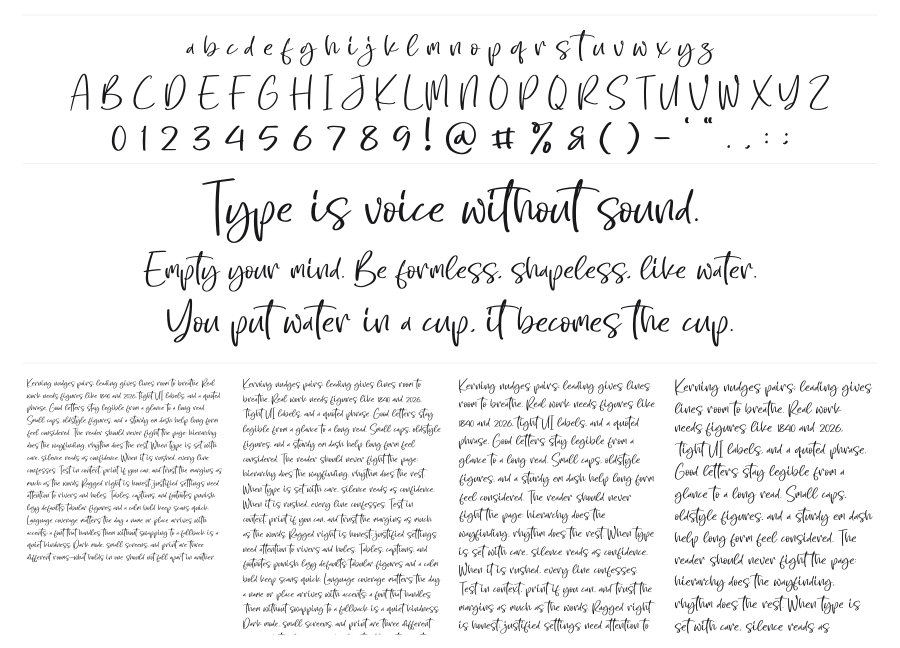 a b c d e f g h i j k l m n o p q r s t u v w x y z
A B C D E F G H I J K L M N O P Q R S T U V W X Y Z
0 1 2 3 4 5 6 7 8 9 ! @ # % & ( ) - ‘ “ . , : ;
Type is voice without sound.
Empty your mind. Be formless, shapeless, like water.
You put water in a cup, it becomes the cup.
Kerning nudges pairs; leading gives lines room to breathe. Real
work needs figures like 1840 and 2026, tight UI labels, and a quoted
phrase. Good letters stay legible from a glance to a long read.
Small caps, oldstyle figures, and a sturdy em dash help long form
feel considered. The reader should never fight the page: hierarchy
does the wayfinding, rhythm does the rest. When type is set with
care, silence reads as confidence. When it is rushed, every line
confesses. Test in context, print if you can, and trust the margins as
much as the words. Ragged right is honest; justified settings need
attention to rivers and holes. Tables, captions, and footnotes punish
leggy defaults. Tabular figures and a calm bold keep scans quick.
Language coverage matters the day a name or place arrives with
accents; a font that handles them without swapping to a fallback is a
quiet kindness. Dark mode, small screens, and print are three
different rooms—what holds in one should not fall apart in another.
Kerning nudges pairs; leading gives lines room to
breathe. Real work needs figures like 1840 and 2026,
tight UI labels, and a quoted phrase. Good letters stay
legible from a glance to a long read. Small caps, oldstyle
figures, and a sturdy em dash help long form feel
considered. The reader should never fight the page:
hierarchy does the wayfinding, rhythm does the rest.
When type is set with care, silence reads as confidence.
When it is rushed, every line confesses. Test in
context, print if you can, and trust the margins as much
as the words. Ragged right is honest; justified settings
need attention to rivers and holes. Tables, captions, and
footnotes punish leggy defaults. Tabular figures and a calm
bold keep scans quick. Language coverage matters the day
a name or place arrives with accents; a font that handles
them without swapping to a fallback is a quiet kindness.
Dark mode, small screens, and print are three different
Kerning nudges pairs; leading gives lines
room to breathe. Real work needs figures like
1840 and 2026, tight UI labels, and a quoted
phrase. Good letters stay legible from a
glance to a long read. Small caps, oldstyle
figures, and a sturdy em dash help long form
feel considered. The reader should never
fight the page: hierarchy does the
wayfinding, rhythm does the rest. When type
is set with care, silence reads as confidence.
When it is rushed, every line confesses.
Test in context, print if you can, and trust the
margins as much as the words. Ragged right
is honest; justified settings need attention to
Kerning nudges pairs; leading gives
lines room to breathe. Real work
needs figures like 1840 and 2026,
tight UI labels, and a quoted phrase.
Good letters stay legible from a
glance to a long read. Small caps,
oldstyle figures, and a sturdy em dash
help long form feel considered. The
reader should never fight the page:
hierarchy does the wayfinding,
rhythm does the rest. When type is
set with care, silence reads as